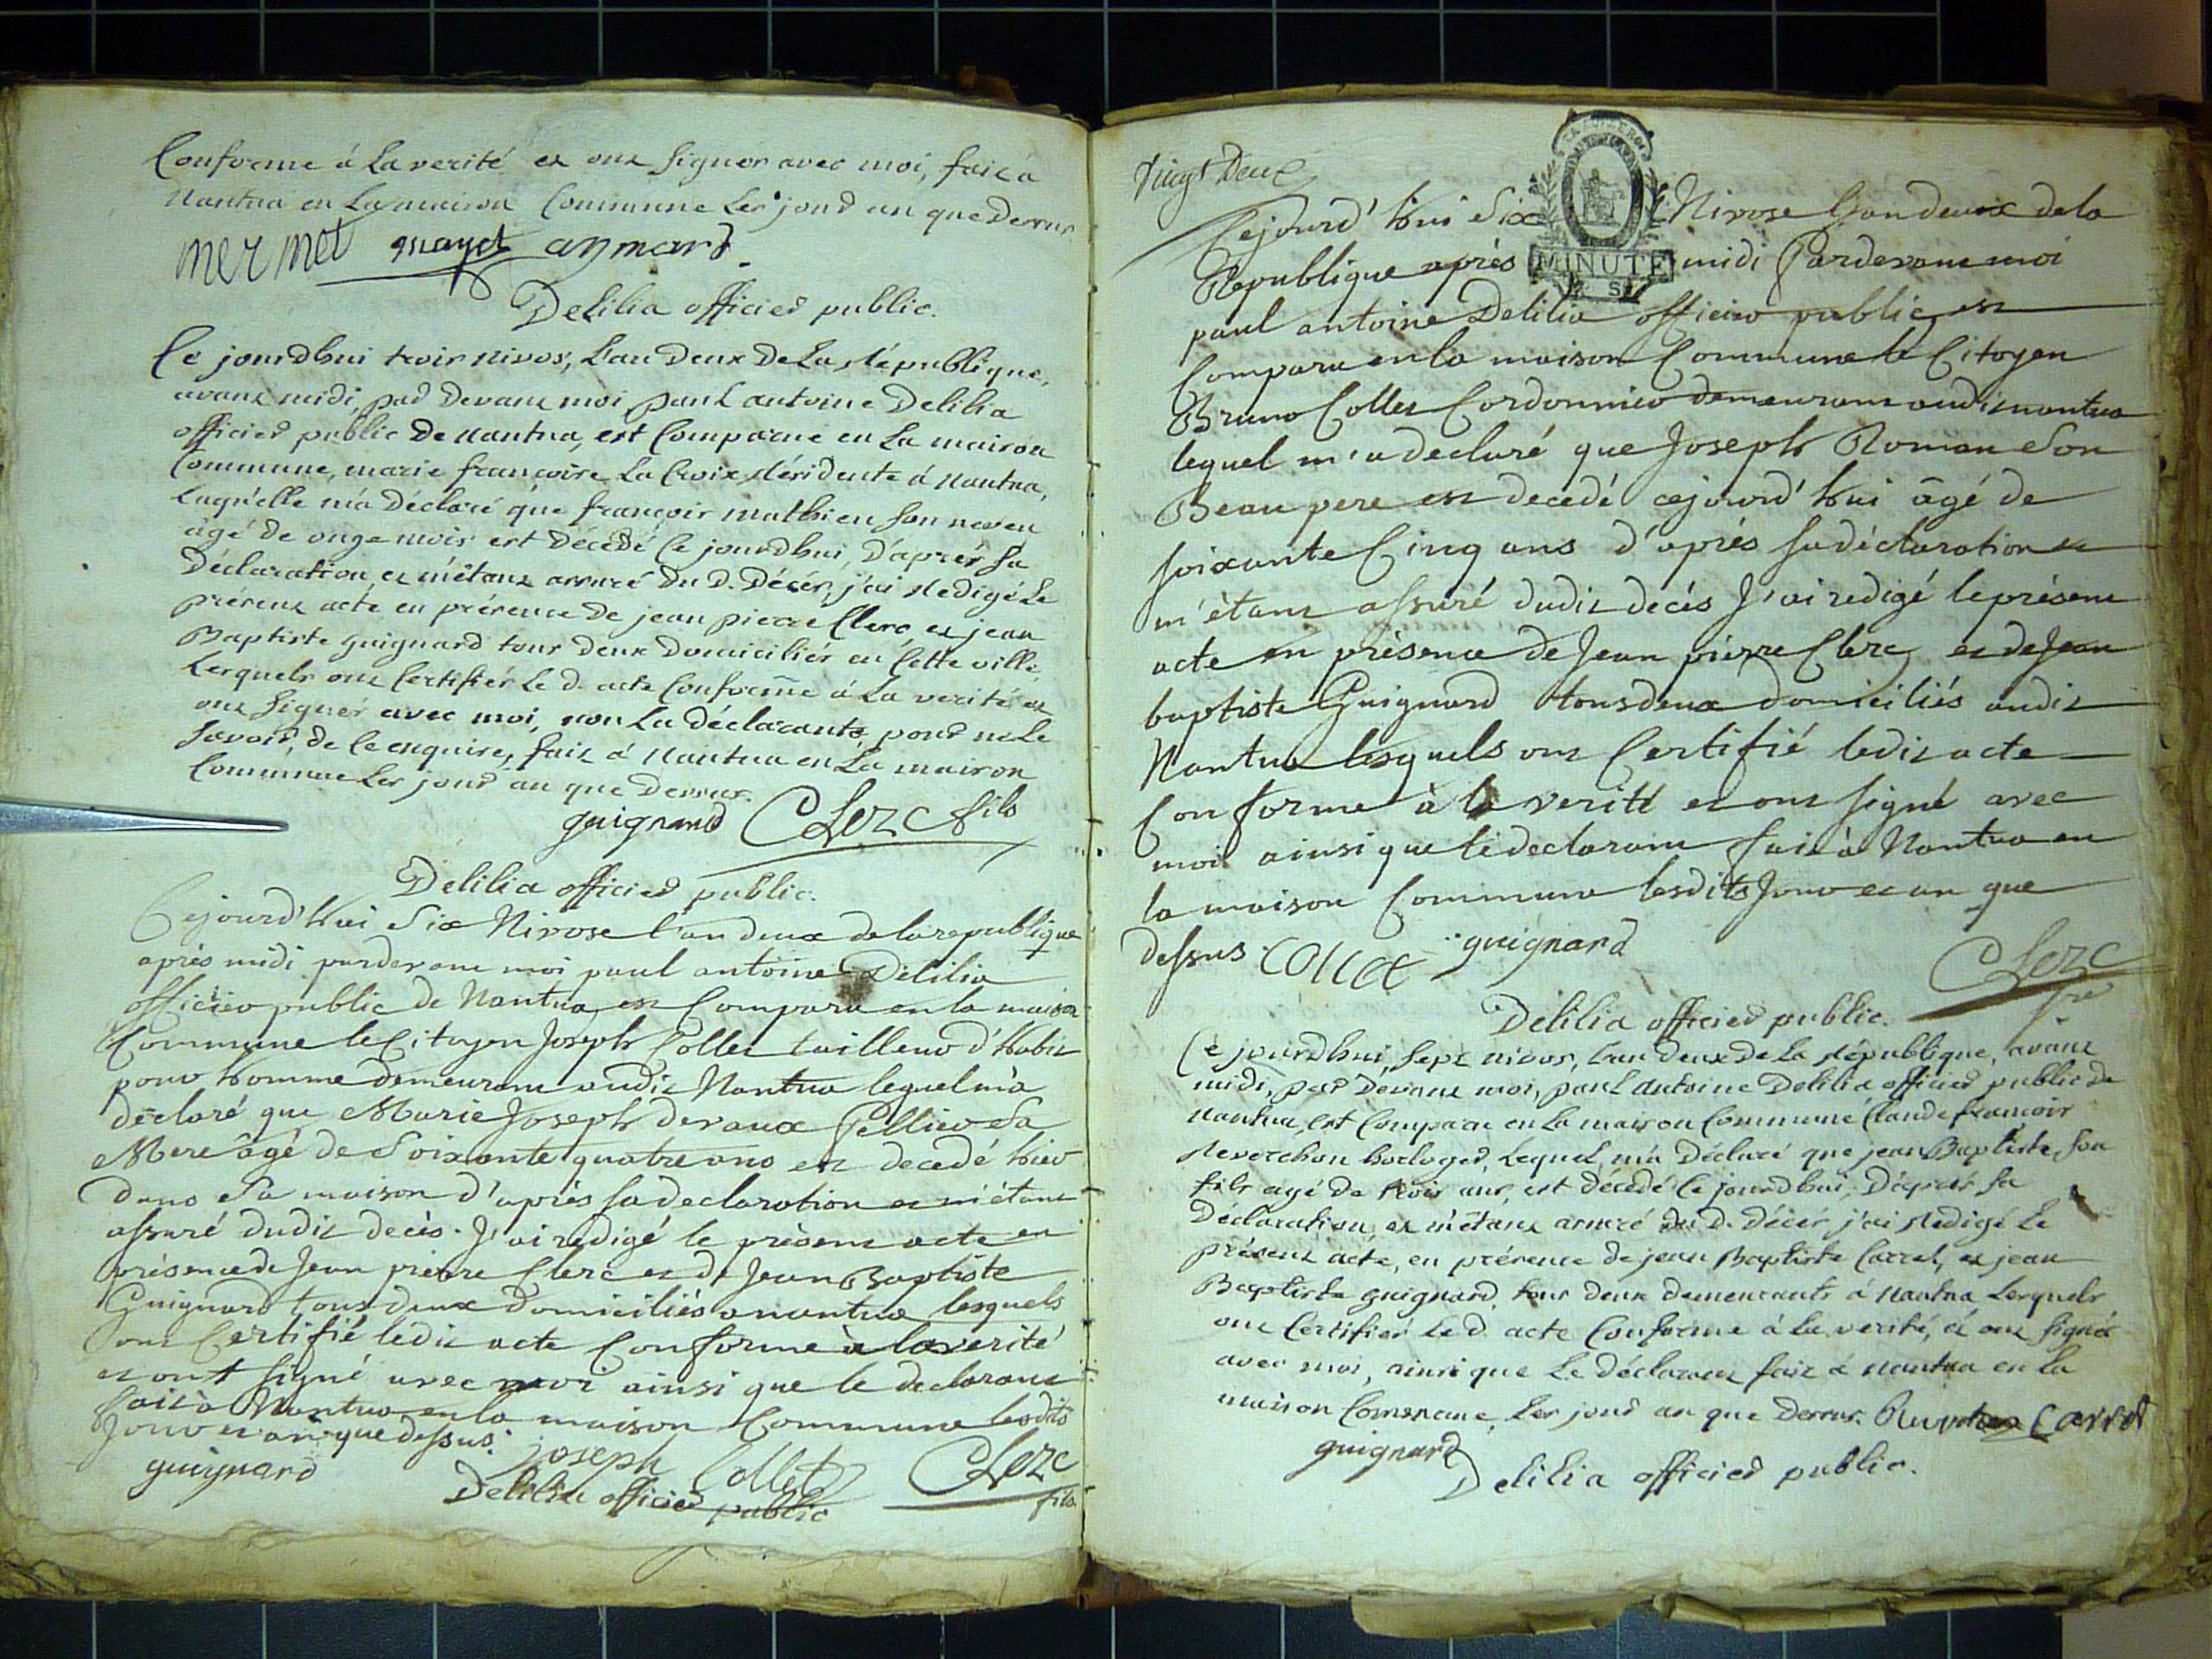 Conforme á La verité et ont signer avec moi, fait a
Nantua en La maison Commune Les jour an que Dessus
mermet mayet aymard
Delilia officier public.
Ce jourdhui trois nivos, L'an Deux De La république,
avant midi, par Devant moi paul antoine Delilia
officier public De nantua, est Comparue en La maison
Commune, marie françoise La Croix résidente á nantua,
Laqu'elle m'a Déclaré que françois mathieu son neveu
âgé De onze mois est Décédé Ce jourdhui, D'après sa
Déclaration et m'étant assuré Du D. Décés, j'ai redigé Le
présent acte en présence De jean pierre Clerc et jean
Baptiste guignard tous deux Domiciliés en Cette ville,
Lesquels ont Certifiés Le d. acte Conforme á La verité et
ont signer avec moi, non La déclarante, pour ne Le
savoir, de Ce enquise, fait á nantua en La maison
Commune Les jour an que Dessus.
guignard Clerc fils
Delilia officier public.
Cejourd'hui Six Nivose l'an deux de la republique
après midi pardevant moi paul antoine Delilia
officier public de Nantua, est Comparu en la maison
Commune le Citoyen Joseph Collet tailleur d'habit
pour homme demeurant audit Nantua lequel m'a
déclaré que Marie Joseph devaux Pellier Sa
Mere âgé de Soixante quatre ans est decedé hier
dans Sa maison d'après sa declaration et m'étant
assuré dudit decès. J'ai redigé le présent acte en
présence de Jean pierre Clerc et de Jean Baptiste
Guignard tous deux domiciliés a nantua lesquels
ont Certifié ledit acte Conforme à la verité
et ont signé avec moi ainsi que le declarant
fait à Nantua en la maison Commune lesdits
Jour et an que dessus.
guignard joseph Collet Clerc
Delilia officier public fils
vingt Deux
Cejourd'hui Six Nivose L'an deux de la
MINUTE
Republique après midi Pardevant moi
paul antoine Delilia officier public est
Comparu en la maison Commune le Citoyen
Bruno Collet Cordonnier demeurant audit nantua
lequel m'a declaré que Joseph Roman Son
Beau pere est decedé cejourd'hui âgé de
soixante Cinq ans d'après sa déclaration et
m'étant assuré dudit decés J'ai redigé le présent
acte en présence de Jean pierre Clerc et de Jean
baptiste Guignard tous deux domiciliés audit
Nantua lesquels ont Certifié ledit acte
Conforme à la verité et ont signé avec
moi ainsi que le declarant fait à Nantua en
la maison Commune lesdits Jour et an que
dessus. Collet guignard Clerc
Delilia officier public.
Ce jourdhui, sept nivos, L'an Deux De La république, avant
midi, par Devant moi, paul antoine Delilia officier public De
nantua, est Comparu en La maison Commune Claude françois
reverchon horloger, Lequel m'a Déclaré que jean Baptiste, son
fils agé De trois ans, est décédé Ce jourdhui, D'après sa
Déclaration et m'étant assuré du D. Décés j'ai redigé Le
présent acte, en présence de jean Baptiste Carret, et jean
Baptiste guignard, tous deux demeurants á nantua Lesquels
ont Certifiés Le D. acte Conforme á La verité, et ont signés
avec moi, ainsi que Le déclarant fait á nantua en La
maison Commune, Les jour an que Dessus. Carret
guignard
Delilia officier public.